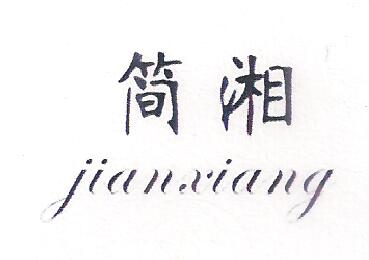 简湘
jianxiang